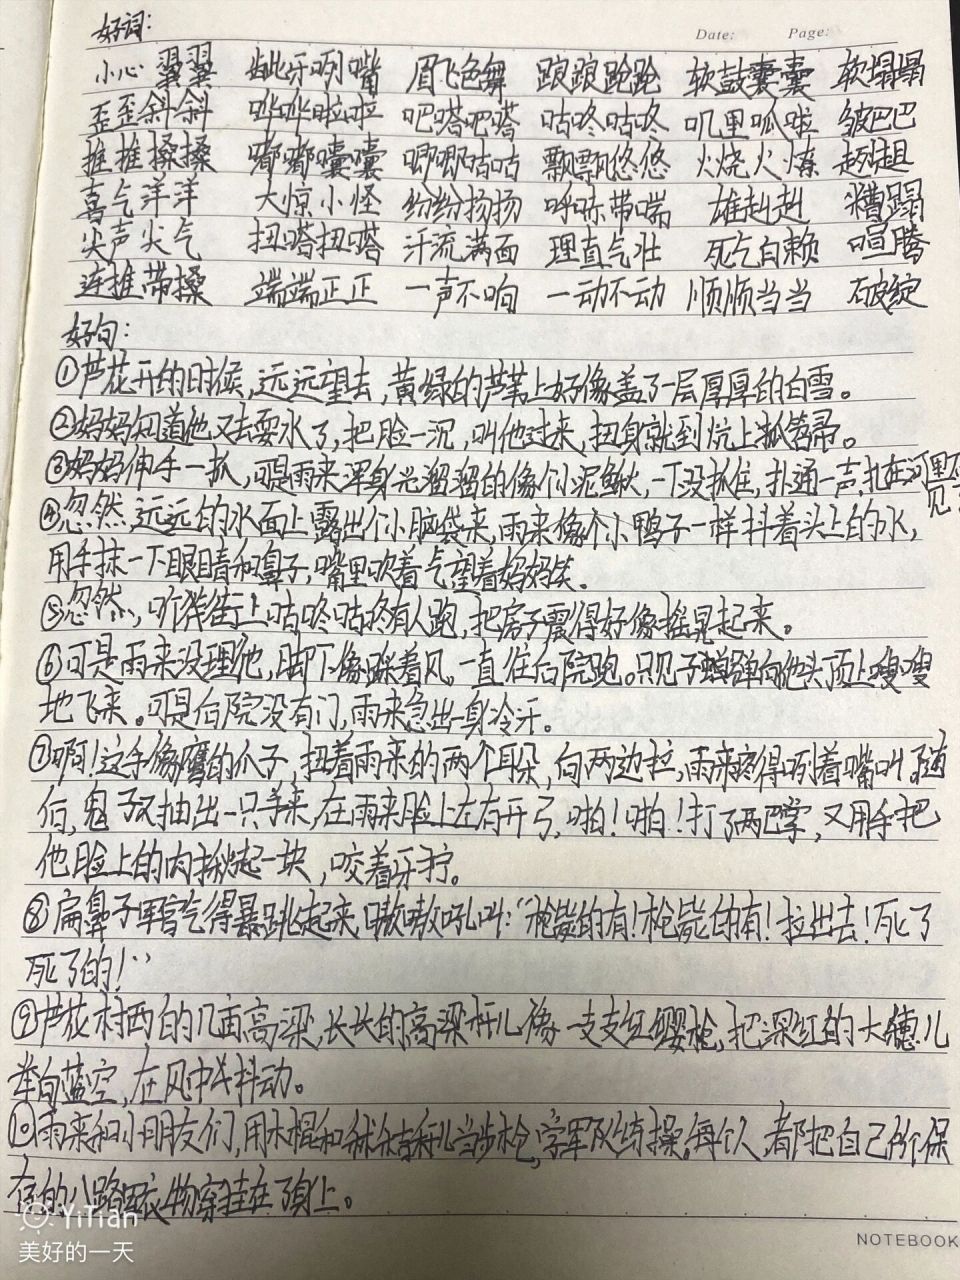 好词：
Date: Page:
小心翼翼 龇牙咧嘴 眉飞色舞 踉踉跄跄 软鼓囊囊 软塌塌
歪歪斜斜 哗哗啦啦 吧嗒吧嗒 咕咚咕咚 叽里呱啦 皱巴巴
推推搡搡 嘟嘟囔囔 唧唧咕咕 飘飘悠悠 火烧火燎 趔趄
喜气洋洋 大惊小怪 纷纷扬扬 呼哧带喘 雄赳赳 糟蹋
尖声尖气 扭嗒扭嗒 汗流满面 理直气壮 死气白赖 喧腾
连推带搡 端端正正 一声不响 一动不动 顺顺当当 破绽
好句：
①芦花开的时候，远远望去，黄绿的芦苇上好像盖了一层厚厚的白雪。
②妈妈知道他又去耍水了，把脸一沉，叫他过来，扭身就到炕上抓笤帚。
③妈妈伸手一抓，可是雨来浑身光溜溜的像个小泥鳅，一下没抓住，扑通一声，扎在河里
见
④忽然，远远的水面上露出个小脑袋来，雨来像个小鸭子一样抖着头上的水，
用手抹一下眼睛和鼻子，嘴里吹着气望着妈妈笑。
⑤忽然，听得街上咕咚咕咚有人跑，把房子震得好像摇晃起来。
⑥可是雨来没理他，脚下像踩着风，一直往后院跑。只见子弹向他头顶上嗖嗖
地飞来。可是后院没有门，雨来急出一身冷汗。
⑦啊！这手像鹰的爪子，扭着雨来的两个耳朵，向两边拉，雨来疼得咧着嘴叫。随
后，鬼子又抽出一只手来，在雨来脸上左右开弓，啪！啪！打了两巴掌，又用手把
他脸上的肉揪起一块，咬着牙拧。
⑧扁鼻子军官气得暴跳起来，嗷嗷吼叫：“枪毙的有！枪毙的有！拉出去！死了
死了的！”
⑨芦花村西的几亩高粱，长长的高粱秆儿像一支支红缨枪，把深红的大穗儿
举向蓝空，在风中抖动。
⑩雨来和小朋友们，用木棍和秫秸秆儿当步枪，学军队练操，每个人都把自己所保
存的八路军衣物穿挂在了身上。
YiTian
美好的一天
NOTEBOOK